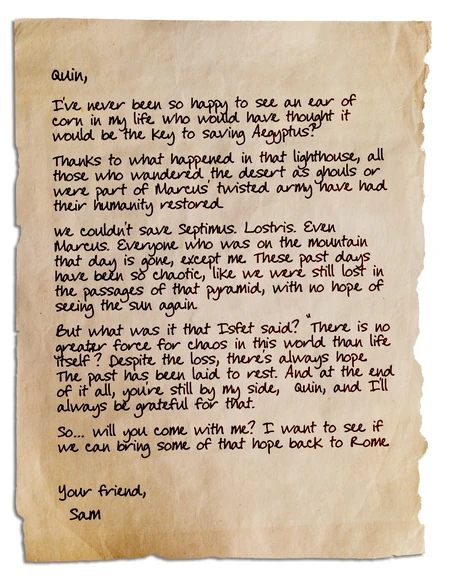 Quin,
I've never been so happy to see an ear of
corn in my life who would have thought it
would be the key to saving Aegyptus?
Thanks to what happened in that lighthouse, all
those who wandered the desert as ghouls or
were part of Marcus' twisted army have had
their humanity restored.
we couldn't save Septimus. Lostris. Even
Marcus. Everyone who was on the mountain
that day is gone, except me These past days
have been so chaotic, like we were still lost in
the passages of that pyramid, with no hope of
seeing the sun again.
But what was it that Isfet said? "There is no
greater force for chaos in this world than life
itself"? Despite the loss, there's always hope
The past has been laid to rest. And at the end
of it all, you're still by my side, Quin, and I'll
always be grateful for that.
So... will you come with me? I want to see if
we can bring some of that hope back to Rome.
Your friend,
Sam